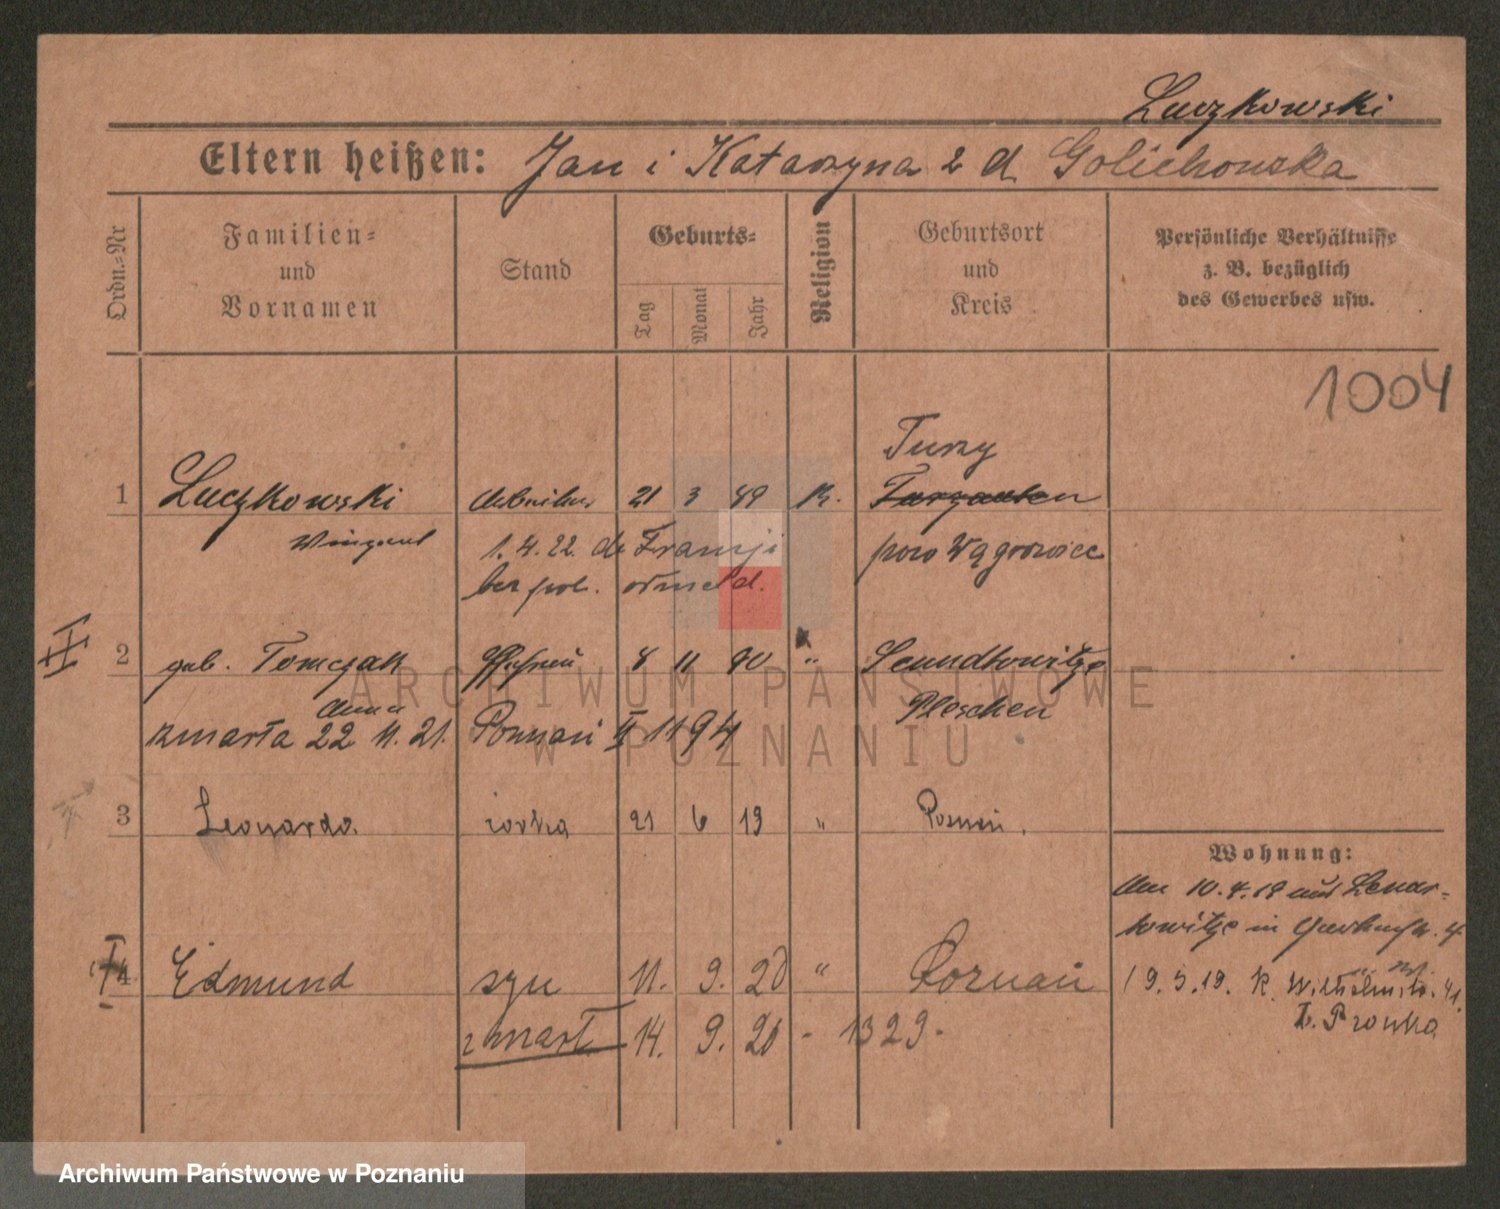 Luczkowski
Eltern heißen: Jan i Katarzyna z d. Golichowska
Ordn.-Nr
Familien-
und
Vornamen
Stand
Geburts-
Tag
Monat
Jahr
Religion
Geburtsort
und
Kreis
Persönliche Verhältnisse
z. B. bezüglich
des Gewerbes usw.
1004
Turzy
1 Luczkowski Arbeiter 21 3 89 K.
Winzent 1. 4. 22. do Francji pow Wągrowiec
bez pol. odmeld.
2 geb. Tomczak 8 11 90 "
Anna Pleschen
zmarła 22 11. 21. Poznań II 1194
3 Leonarda córka 21 6 19 " Poznań.
Wohnung:
Am 10.4.19 aus Lenar-
kowitze in
4 Edmund syn 11. 9. 20 " Poznań
19.5.19. K. 41.
zmarł 14. 9. 20 - 1329.
ARCHIWUM PAŃSTWOWE
W POZNANIU
Archiwum Państwowe w Poznaniu